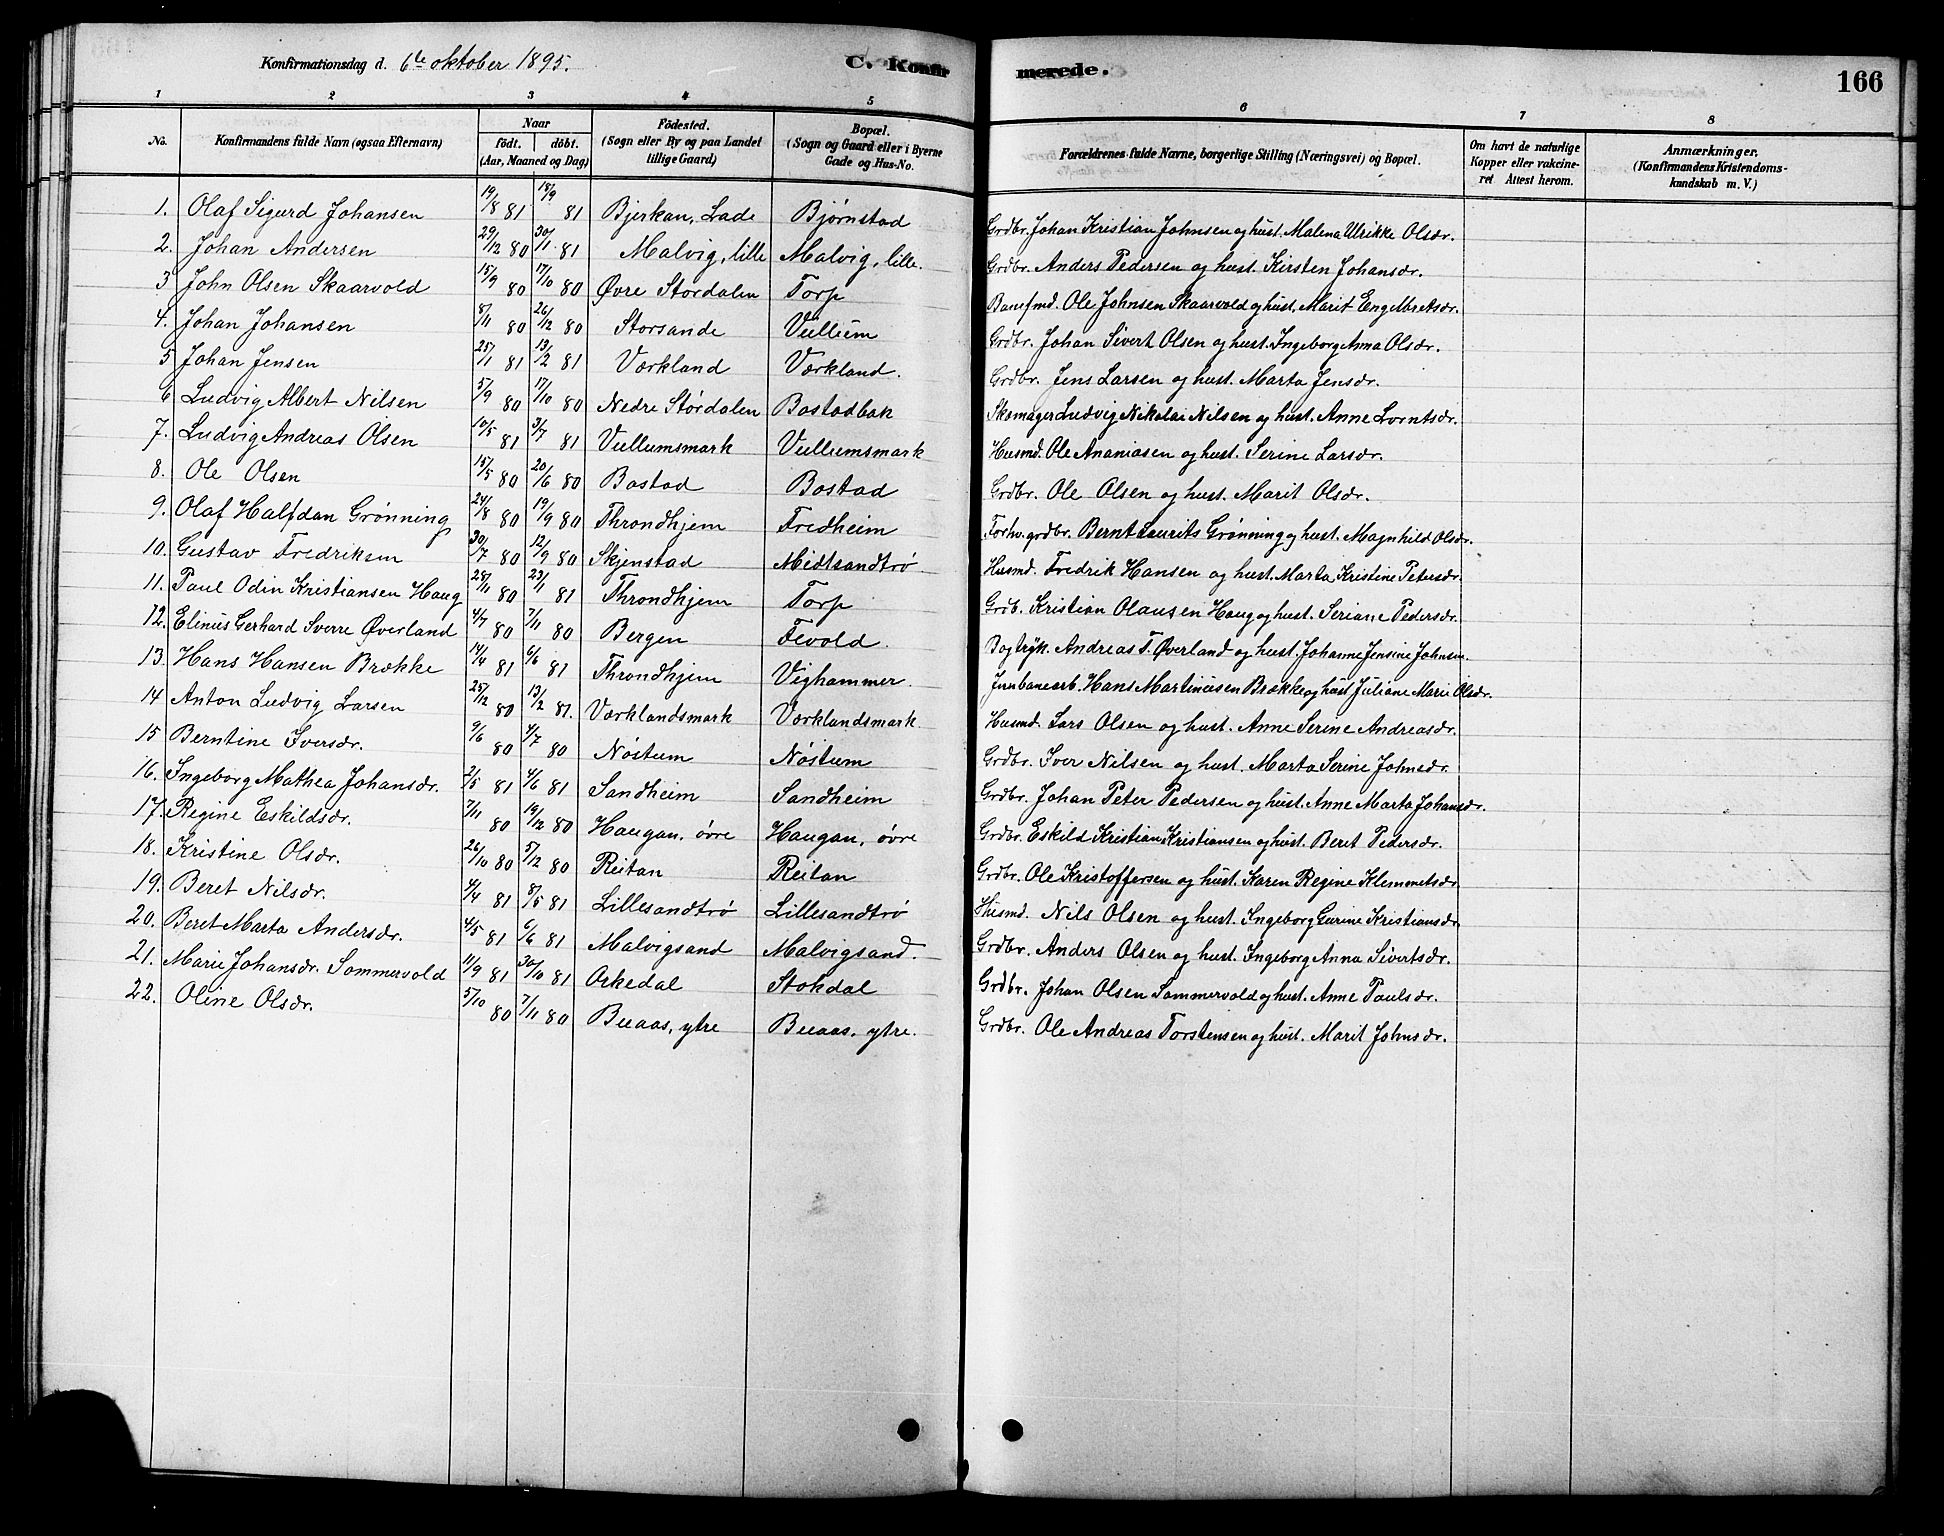 Konfirmationsdag d. 6te oktober 1895.
C. Konfirmerede.
166
1 2 3 4 5 6 7 8
No. | Konfirmandens fulde Navn (ogsaa Efternavn) | Naar födt. döbt. (Aar, Maaned og Dag) | Födested. (Sogn eller By og paa Landet tillige Gaard) | Bopæl. (Sogn og Gaard eller i Byerne Gade og Hus-No. | Forældrenes fulde Navne, borgerlige Stilling (Næringsvei) og Bopæl. | Om havt de naturlige Kopper eller vakcineret Attest herom. | Anmærkninger, (Konfirmandens Kristendomskundskab m. V.)
1. Olaf Sigurd Johansen 19/8 81 18/9 81 Bjerkan, Lade Bjørnstad Grdbr. Johan Kristian Johnsen og hust. Malena Ulrikke Olsdr.
2. Johan Andersen 29/12 80 30/1 81 Malvig, lille Malvig, lille. Grdbr. Anders Pedersen og hust. Kirsten Johansdr.
3 John Olsen Skaarvold 15/9 80 17/10 80 Øvre Størdalen Torp Banefmd. Ole Johnsen Skaarvold og hust. Marit Engelbretsdr.
4. Johan Johansen 8/11 80 26/12 80 Storsande Vullum Grdbr. Johan Sivert Olsen og hust. Ingeborg Anna Olsdr.
5 Johan Jensen 25/11 81 13/2 81 Værkland Værkland. Grdbr. Jens Larsen og hust. Marta Jensdr.
6 Ludvig Albert Nilsen 5/9 80 17/10 80 Nedre Størdalen Bostadbak Skomager Ludvig Nikolai Nilsen og hust. Anne Lorntsdr.
7. Ludvig Andreas Olsen 10/5 81 3/7 81 Vullumsmark Vullumsmark Husmd. Ole Ananiasen og hust. Serine Larsdr.
8. Ole Olsen 15/5 80 20/6 80 Bostad Bostad Grdbr. Ole Olsen og hust. Marit Olsdr.
9. Olaf Halfdan Grønning 24/8 80 19/9 80 Throndhjem Fredheim Forhv. grdbr. Bernt Laurits Grønning og hust. Magnhild Olsdr.
10. Gustav Fredriksen 30/7 80 12/9 80 Skjenstad Midtsandtrø Husmd. Fredrik Hansen og hust. Marta Kristine Petersdr.
11. Paul Odin Kristiansen Haug 28/11 80 23/1 81 Throndhjem Torp Grdb. Kristian Olausen Haug og hust. Seriane Pedersdr.
12. Elinus Gerhard Sverre Øverland 4/7 80 7/11 80 Bergen Fevold. Bogtryk. Andreas T. Øverland og hust. Johanne Jensine Johnsen.
13. Hans Hansen Brække 14/4 81 6/6 81 Throndhjem Vighammer Jernbanearb. Hans Martinusen Brække og hust Juliane Marie Olsdr.
14 Anton Ludvig Larsen 25/12 80 13/2 81. Værklandsmark Værklandsmark Husmd. Lars Olsen og hust. Anne Serine Andreasdr.
15 Berntine Iversdr. 9/6 80 4/7 80 Nøstum Nøstum Grdbr. Iver Nilsen og hust. Marta Serine Johnsdr.
16. Ingeborg Mathea Johansdr. 2/5 81 4/6 81 Sandheim Sandheim Grdbr. Johan Peter Pedersen og hust. Anne Marta Johansdr.
17. Regine Eskildsdr. 7/11 80 19/12 80 Haugan, øvre Haugan, øvre Grdbr. Eskild Kristian Kristiansen og hust. Beret Pedersdr.
18. Kristine Olsdr. 26/10 80 5/12 80 Reitan Reitan Grdbr. Ole Kristoffersen og hust. Karen Regine Klemmetsdr.
19. Beret Nilsdr. 4/4 81 8/5 81 Lillesandtrø Lillesandtrø Husmd. Nils Olsen og hust. Ingeborg Gurine Kristiansdr.
20. Beret Marta Andersdr. 4/5 81 6/6 81 Malvigsand Malvigsand. Grdbr. Anders Olsen og hust. Ingeborg Anna Sivertsdr.
21. Marie Johansdr. Sommervold 11/9 81 30/10 81 Orkedal Stokdal Grdbr. Johan Olsen Sommervold og hust. Anne Paulsdr.
22. Oline Olsdr. 5/10 80 7/11 80 Buaas, ytre Buaas, ytre. Grdbr. Ole Andreas Torstensen og hust. Marit Johnsdr.